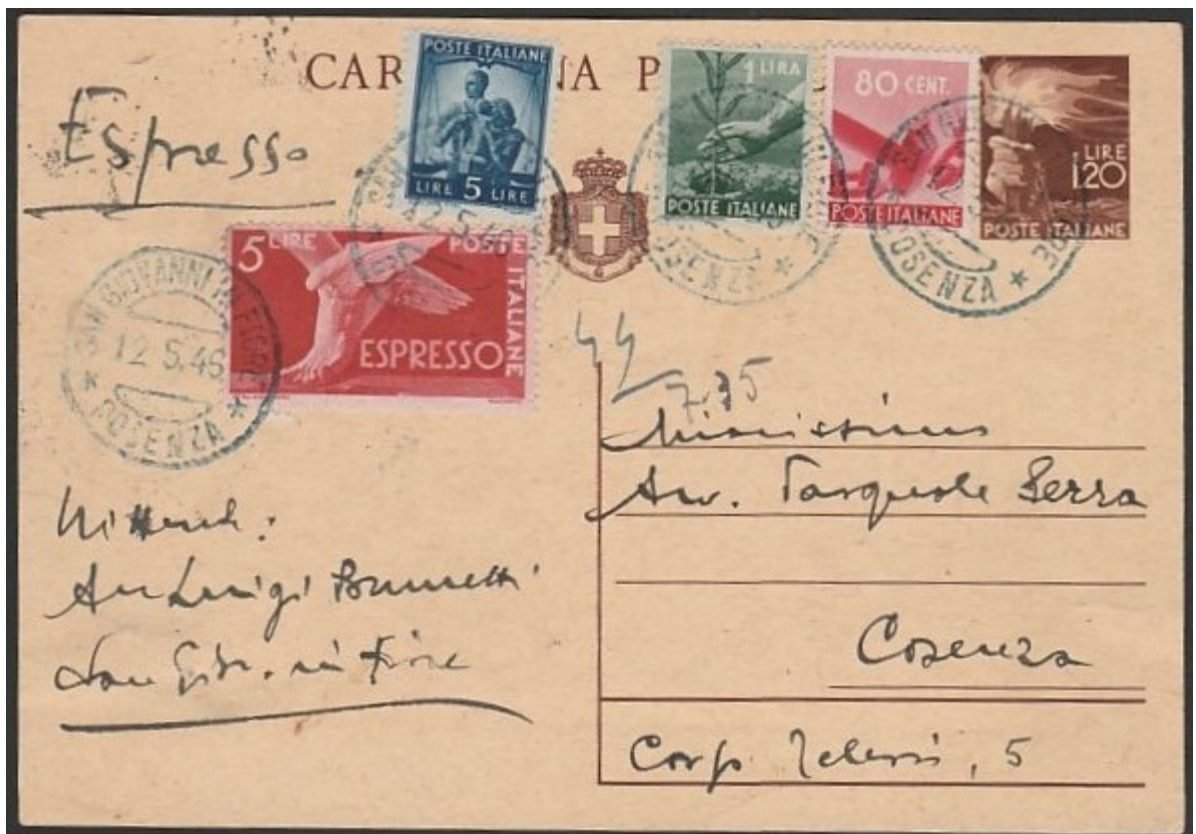 CAR NA P
Espresso
POSTE ITALIANE
LIRE 5 LIRE
1 LIRA
POSTE ITALIANE
80 CENT.
POSTE ITALIANE
LIRE
1.20
POSTE ITALIANE
5 LIRE POSTE ITALIANE
ESPRESSO
SAN GIOVANNI IN FIORE
12 5.46
* COSENZA *
12.5.46
COSENZA *
COSENZA *
44
7.35
Avv. Pasquale Serra
Cosenza
5
Avv Luigi Brunetti
San Giov. in Fiore